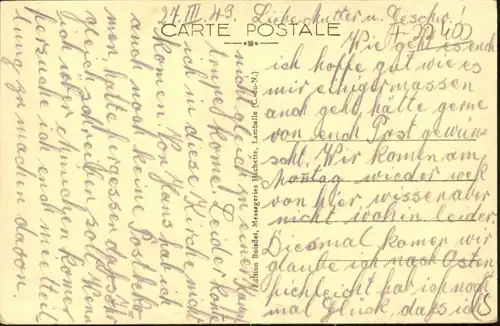 27.III.43. Liebe Mutter u. Geschw!
A 22400
CARTE POSTALE
Wie geht es euch
ich hoffe gut wie es
mir einigermassen
auch geht, hätte gerne
von euch Post gewün-
scht. Wir komen am
Montag wieder weck
von hier, wissen aber
nicht wohin leider.
Diesmal komen wir
glaube ich nach Osten
vieleicht hab ich noch
mal Glück, daß ich
nicht gleich in einen
komme. Leider konte
ich in diese Kirche nicht
komen. Von Hans hab ich
auch noch keine Post beko-
men, hatte vergessen daß ich ihr
gleich schreiben soll. Wenn
ich rüber komen
versuche ich euch mitteil-
lung zu machen davon.
Edition Boisdet, Messageries Hachette, Lamballe (C.-du-N.)